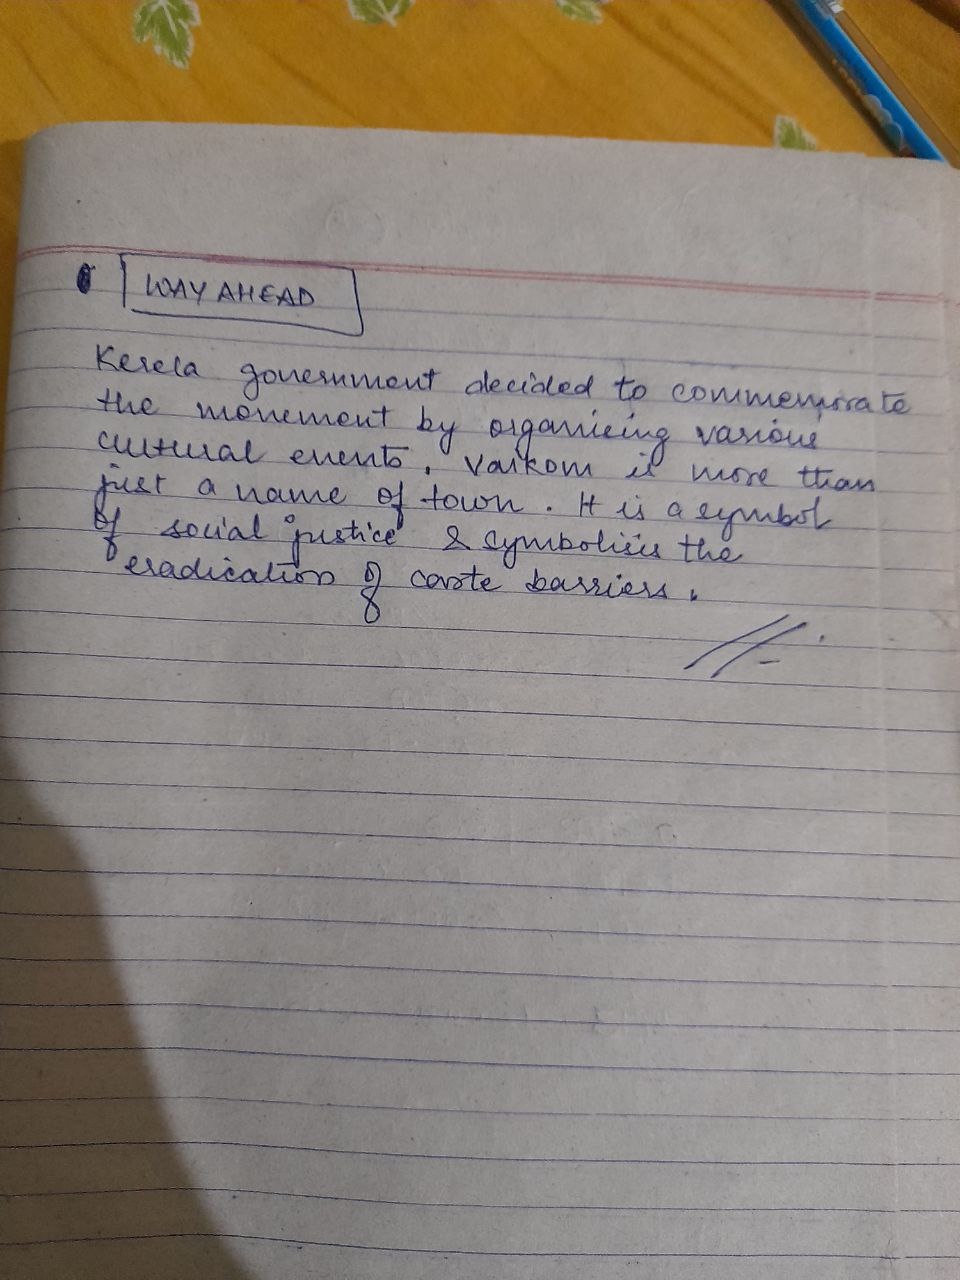 WAY AHEAD
Kerela government decided to commemorate
the movement by organising various
cultural events. Vaikom is more than
just a name of town. It is a symbol
of social justice & symbolises the
eradication of caste barriers.